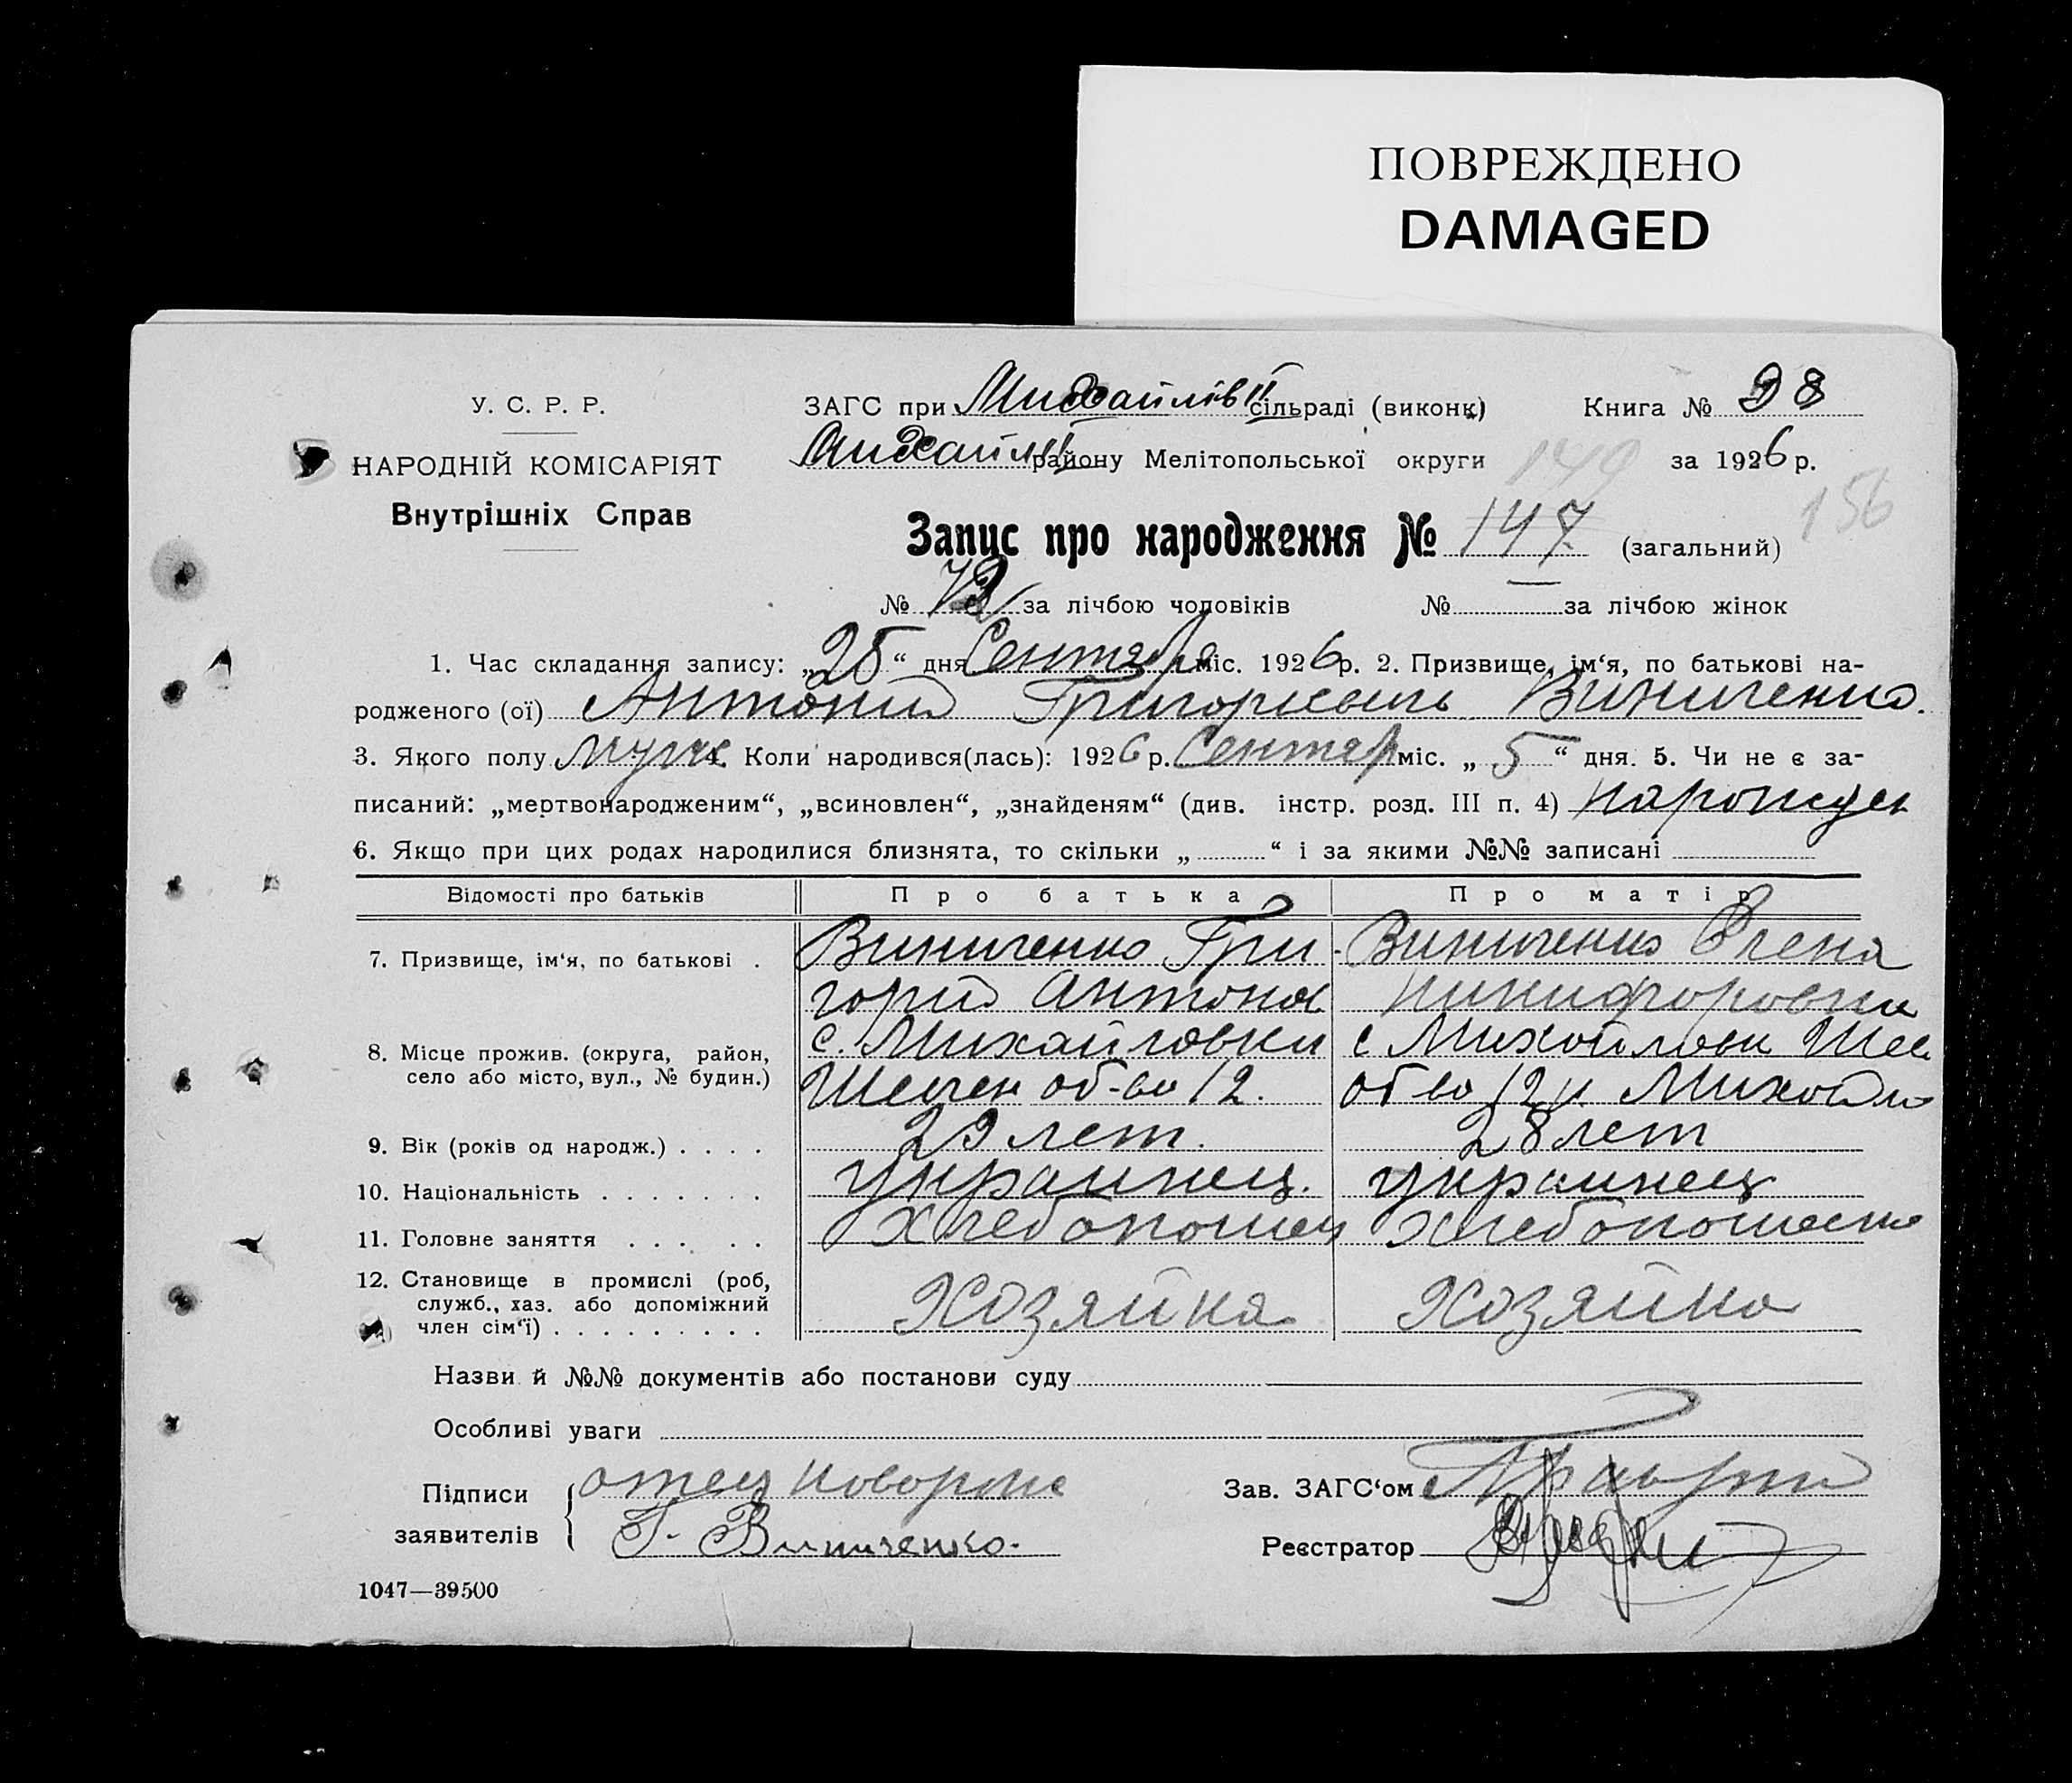 ПОВРЕЖДЕНО
DAMAGED
У. С. Р. Р.
НАРОДНІЙ КОМІСАРІЯТ
Внутрішніх Справ
ЗАГС при Михайлів сільраді (виконк) Книга № 98
Михайлів району Мелітопольської округи за 1926 р.
149
156
Запис про народження № 147 (загальний)
№ 72 за лічбою чоловіків № за лічбою жінок
1. Час складання запису: „25“ дня Сентября міс. 1926 р. 2. Призвище, ім‘я, по батькові на-
родженого (ої) Антоний Григориевич Виниченко.
3. Якого полу муж 4. Коли народився(лась): 1926 р. Сентяр міс. „5“ дня. 5. Чи не є за-
писаний: „мертвонародженим“, „всиновлен“, „знайденям“ (див. інстр. розд. III п. 4) нарожден
6. Якщо при цих родах народилися близнята, то скільки „ “ і за якими №№ записані
Відомості про батьків Про батька Про матір
7. Призвище, ім‘я, по батькові . Виниченко Гри- Виниченко Елена
горий Антонов Никифоровна
8. Місце прожив. (округа, район, с. Михайловки с Михойловк Шев
село або місто, вул., № будин.) Шевчен об-во 12. об во 12
9. Вік (років од народж.) . . . . 29 лет. 28 лет
10. Національність . . . . . . . украинец. украинец
11. Головне заняття . . . . . хлебопошец хлебопошество
12. Становище в промислі (роб, Хозяйка Хозяйка
служб., хаз. або допоміжний
член сім‘ї) . . . . . . . . .
Назви й №№ документів або постанови суду
Особливі уваги
Підписи отец новорож Зав. ЗАГС‘ом
заявителів Г. Виниченко. Реєстратор
1047—39500